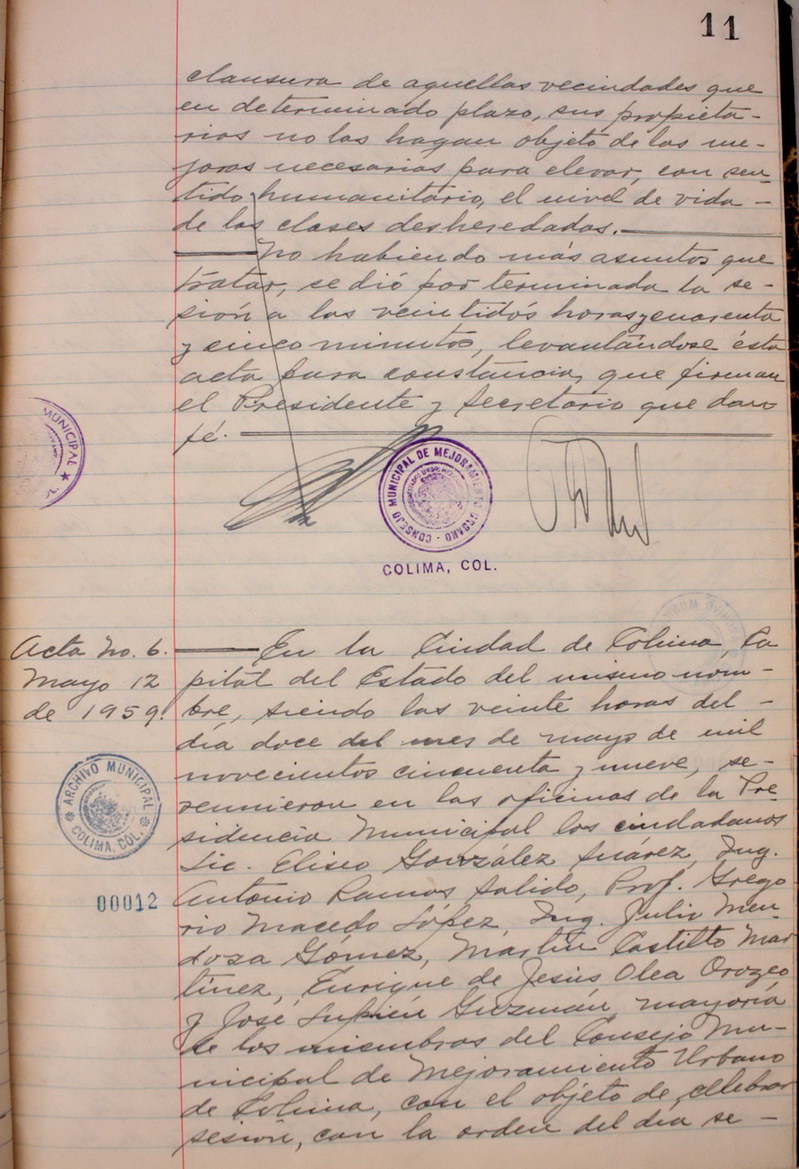 11
clausura de aquellas vecindades que
en determinado plazo, sus propieta-
rios no las hagan objeto de las me-
joras necesarias para elevar, con sen-
tido humanitario, el nivel de vida -
de las clases desheredadas.
No habiendo más asuntos que
tratar, se dió por terminada la se-
sión a las veintidós horas y cuarenta
y cinco minutos, levantándose ésta
acta para constancia, que firman
el Presidente y Secretario que dan
fé.
MUNICIPAL
CONSEJO MUNICIPAL DE MEJORAMIENTO URBANO
COLIMA, COL.
Acta No. 6.
Mayo 12
de 1959.
En la Ciudad de Colima, Ca
pital del Estado del mismo nom-
bre, siendo las veinte horas del -
día doce del mes de mayo de mil
novecientos cincuenta y nueve, se-
reunieron en las oficinas de la Pre-
sidencia Municipal los ciudadanos
Lic. Eliseo González Suárez, Ing.
Antonio Ramos Salido, Prof. Grego
rio Macedo López, Ing. Julio Men-
doza Gómez, Martín Castillo Mar
tínez, Enrique de Jesús Olea Orozco
y José Guzmán, mayoría
de los miembros del Consejo Mu-
nicipal de Mejoramiento Urbano
de Colima, con el objeto de celebrar
sesión, con la orden del día se-
ARCHIVO MUNICIPAL
COLIMA, COL.
00012